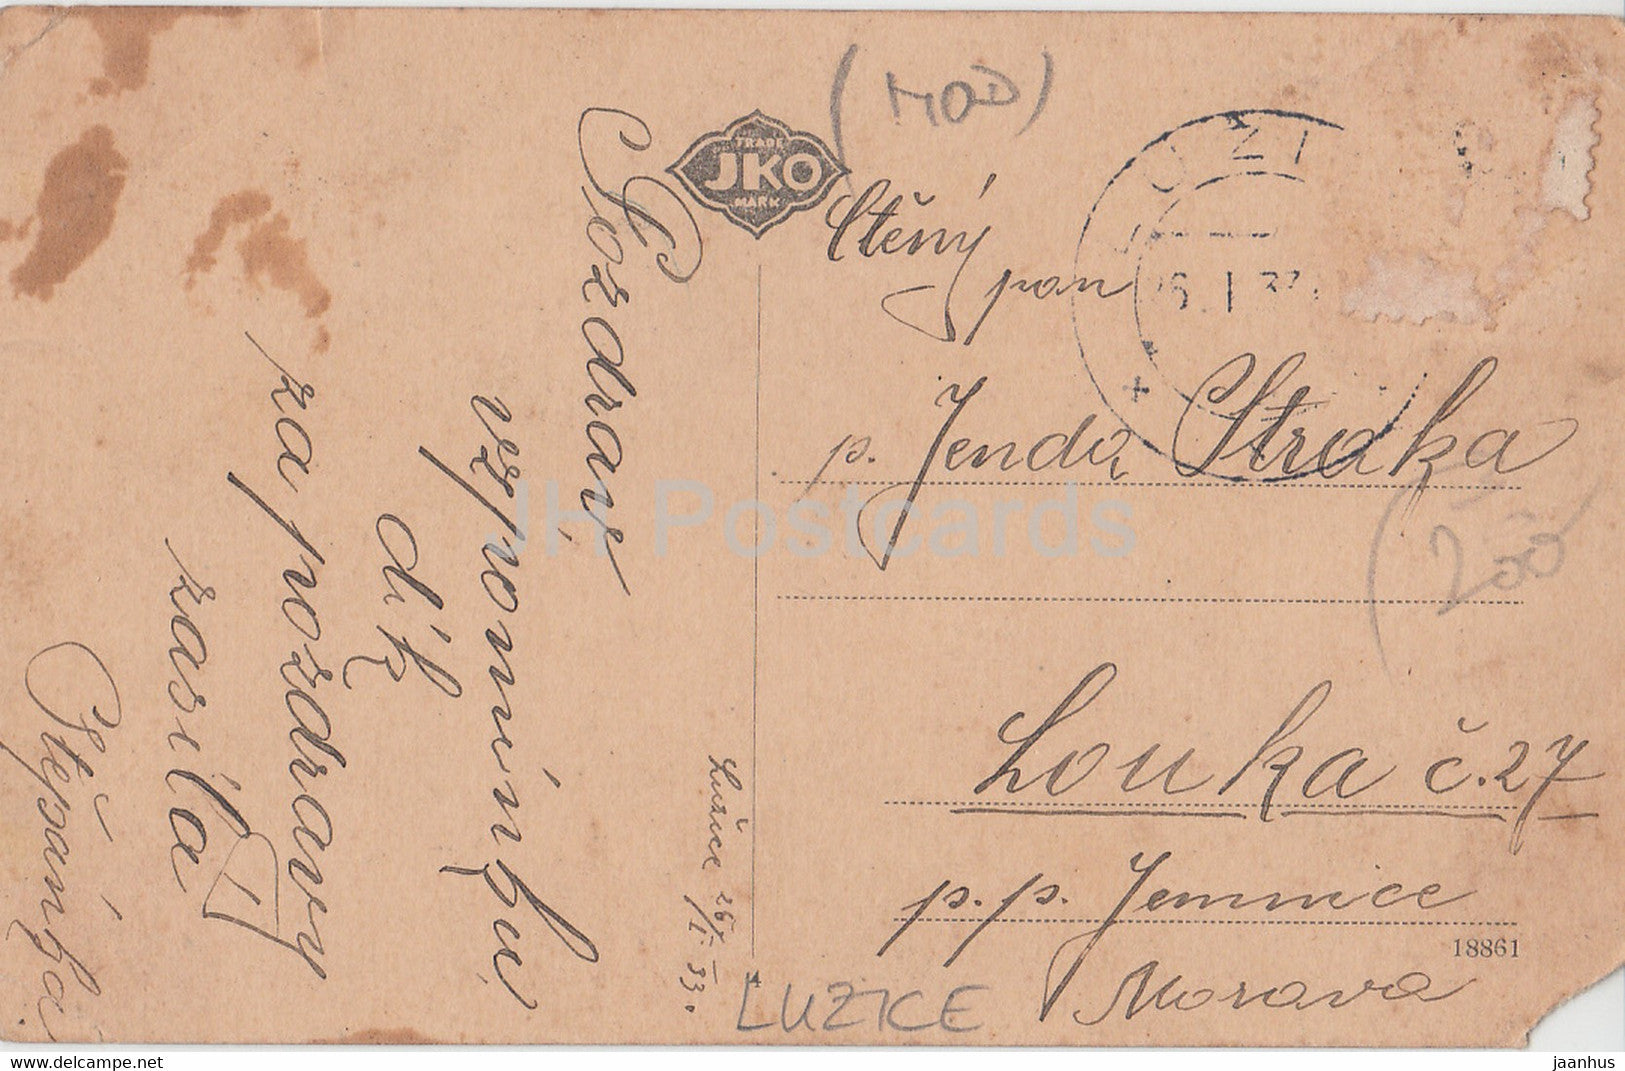 (MOD)
TRADE
JKO
MARK
Ctěný
pan
p. Jenda Straka
Louka č. 27
p. p. Jemnice
Morava
18861
(200)
LUŽI
26. I. 33
Pozdrav
vzpomínku
dík
za pozdravy
zasílá
Štěpánka
Lužice 26/I. 33.
LUZICE
JH Postcards
www.delcampe.net
jaanhus